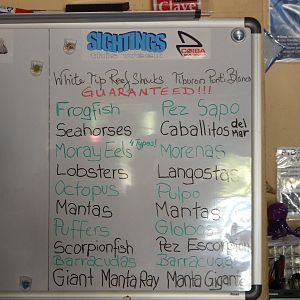 Clavel
SIGHTINGS
this week
COIBA
White Tip Reef Sharks Tiburon Punti Blanco
GUARANTEED!!!
Frogfish Pez Sapo
Seahorses Caballitos del Mar
Moray Eels 4 Types! Morenas
Lobsters Langostas
Octopus Pulpo
Mantas Mantas
Puffers Globos
Scorpionfish Pez Escorpion
Barracudas Barracudas
Giant Manta Ray Manta Gigante